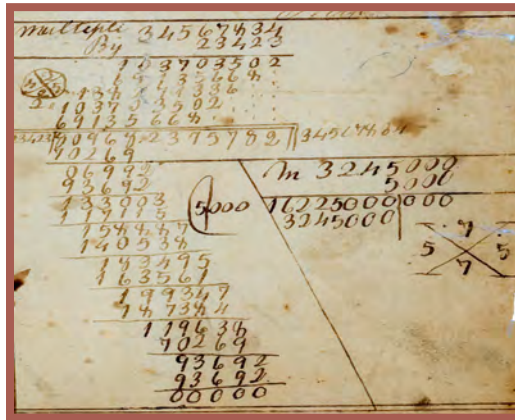 Multiply 34567834
By 23423
103703502
69135668
138271336
103703502
69135668
23423 809682375782 34567834
70269
06992
93692
133003
117115
158887
140538
183495
187384
70269
93692
93692
00000
5000
M 3245000
5000
16225000000
3245000
7
5 5
7